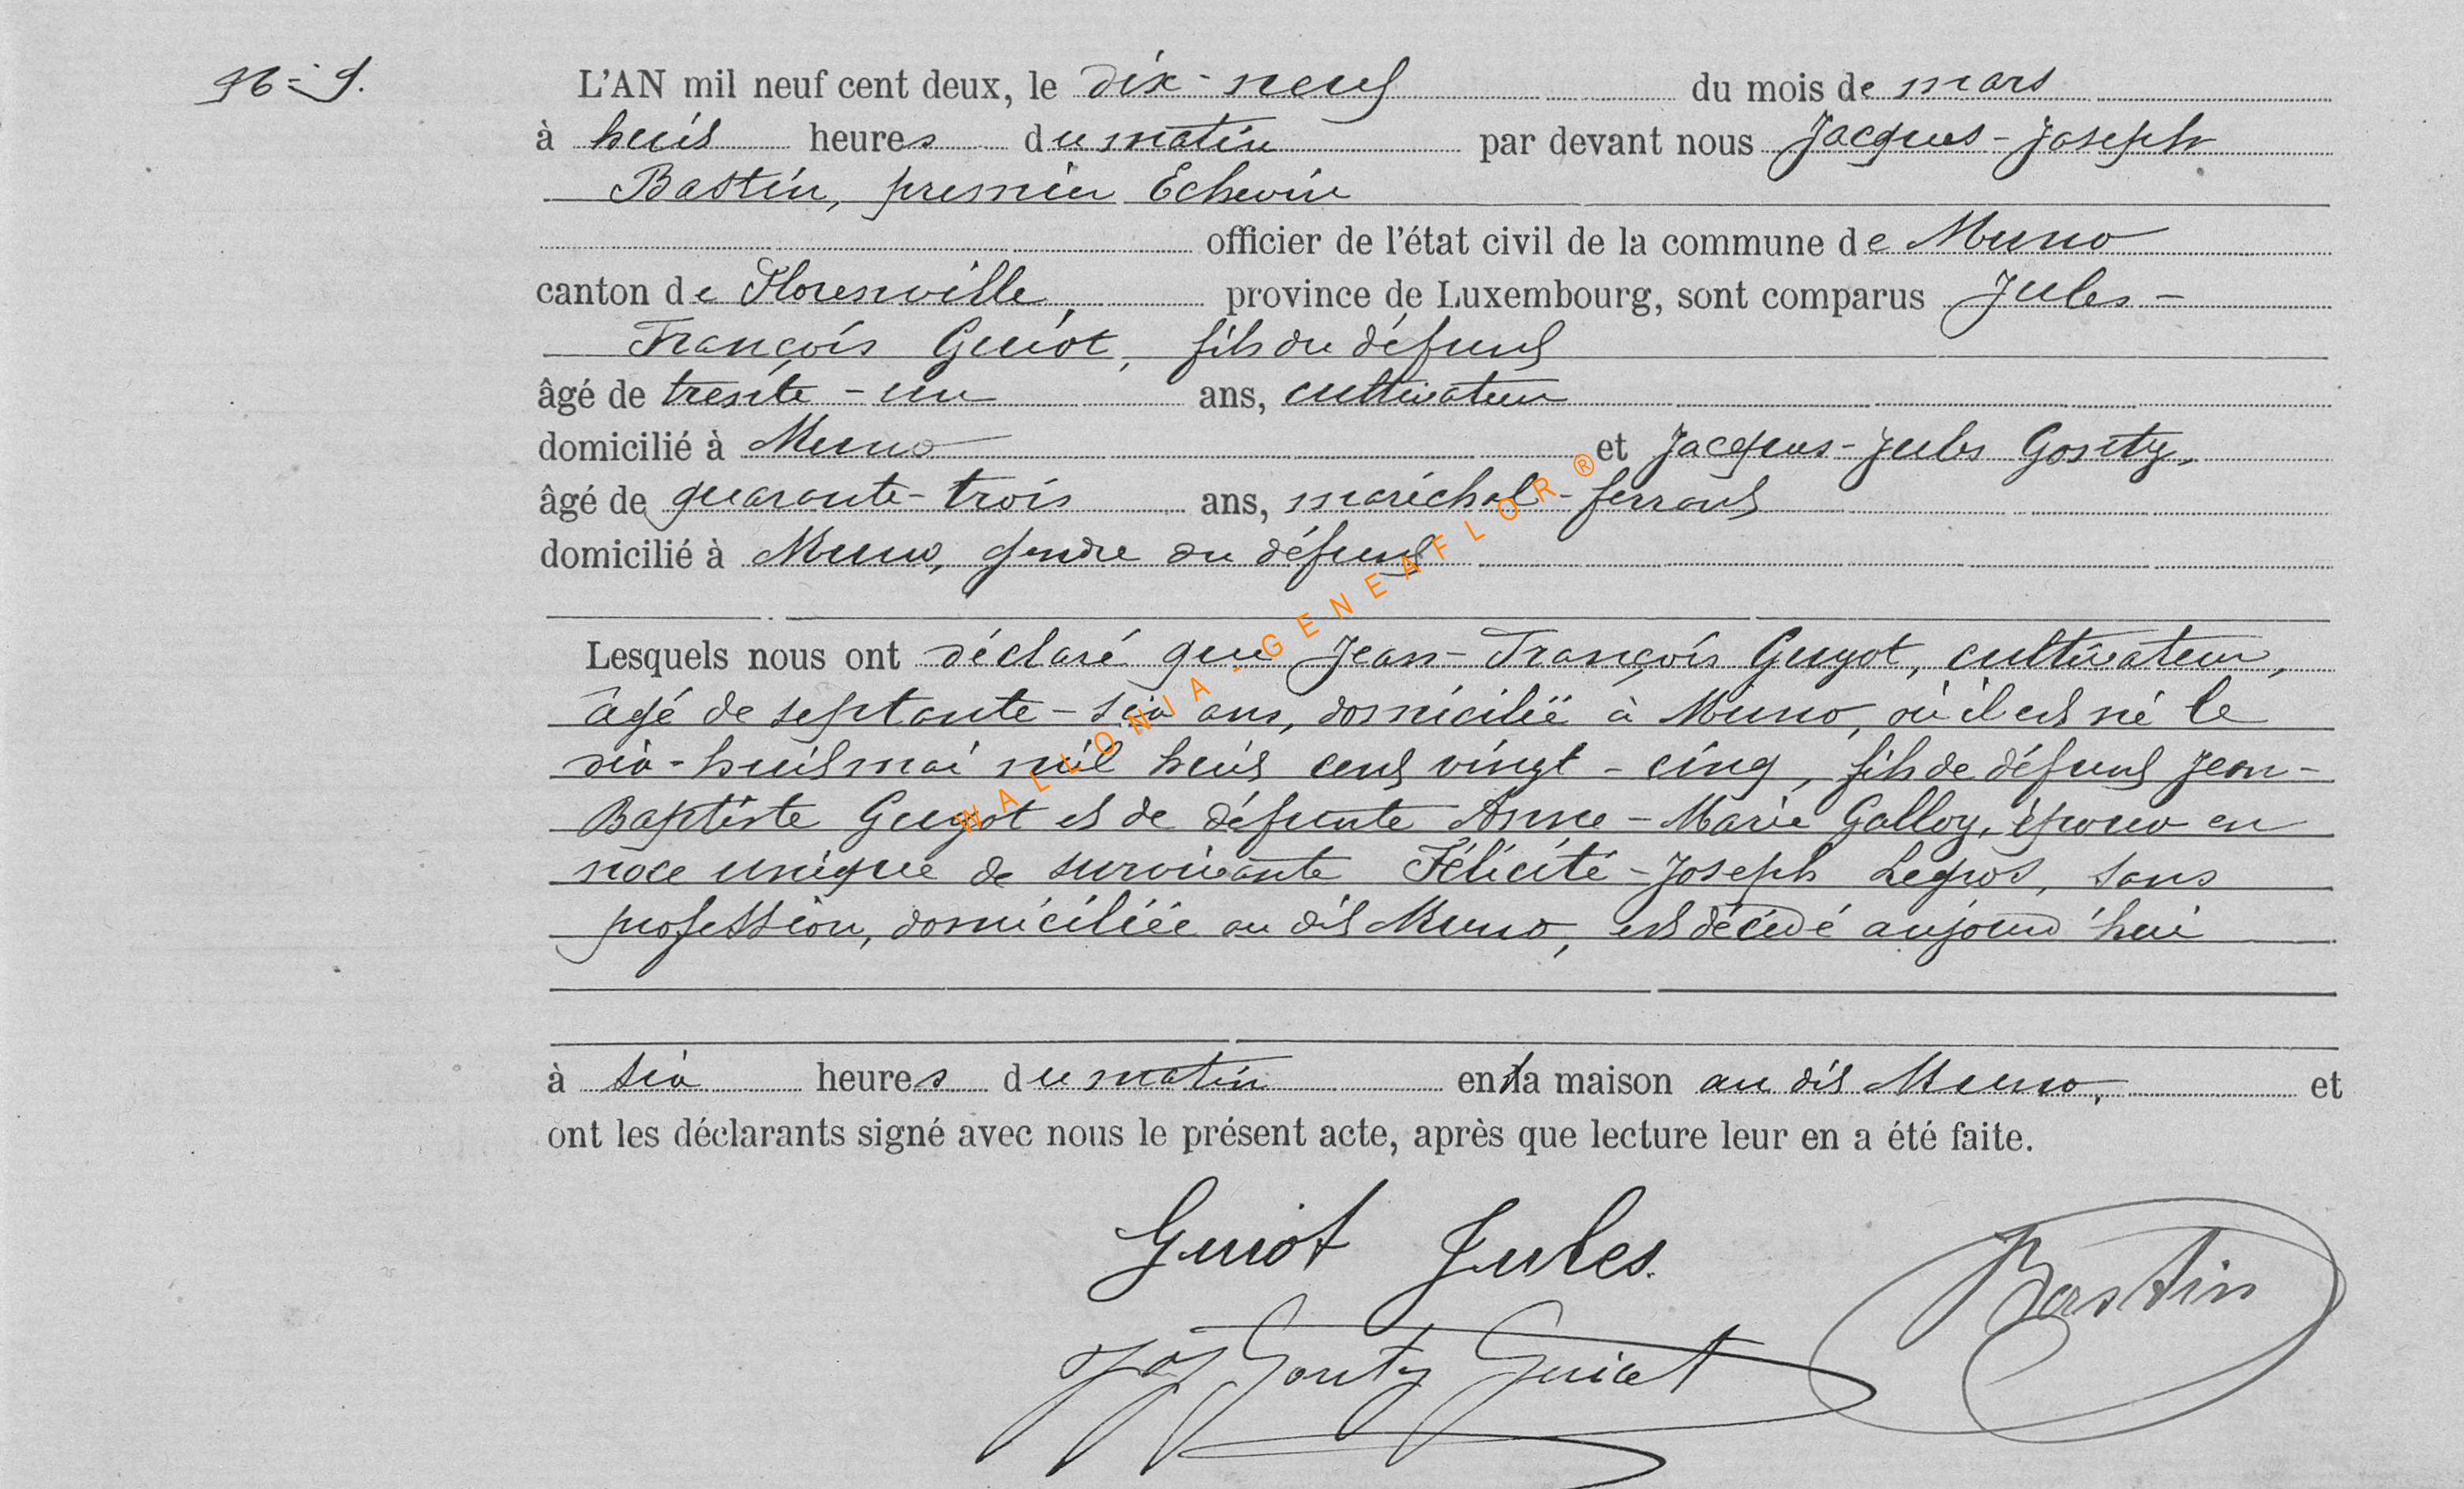 96=9.
L'AN mil neuf cent deux, le dix-neuf du mois de mars
à huit heures du matin par devant nous Jacques-Joseph
Bastin, premier Echevin
officier de l'état civil de la commune de Muno
canton de Florenville, province de Luxembourg, sont comparus Jules-
François Guiot, fils du défunt
âgé de trente-un ans, cultivateur
domicilié à Muno et Jacques-Jules Gontry,
âgé de quarante-trois ans, maréchal-ferrant
domicilié à Muno, gendre du défunt
Lesquels nous ont déclaré que Jean-François Guyot, cultivateur,
âgé de septante-six ans, domicilié à Muno, où il est né le
dix-huit mai mil huit cent vingt-cinq, fils de défunt Jean-
Baptiste Guyot et de défunte Anne-Marie Galloy, époux en
noce unique de survivante Félicité-Joseph Legros, sans
profession, domiciliée au dit Muno, est décédé aujourd'hui
à six heures du matin en sa maison au dit Muno, et
ont les déclarants signé avec nous le présent acte, après que lecture leur en a été faite.
Guiot Jules.
Bastin
Gouty Guiot
WALLONIA-GENEAFLOR®